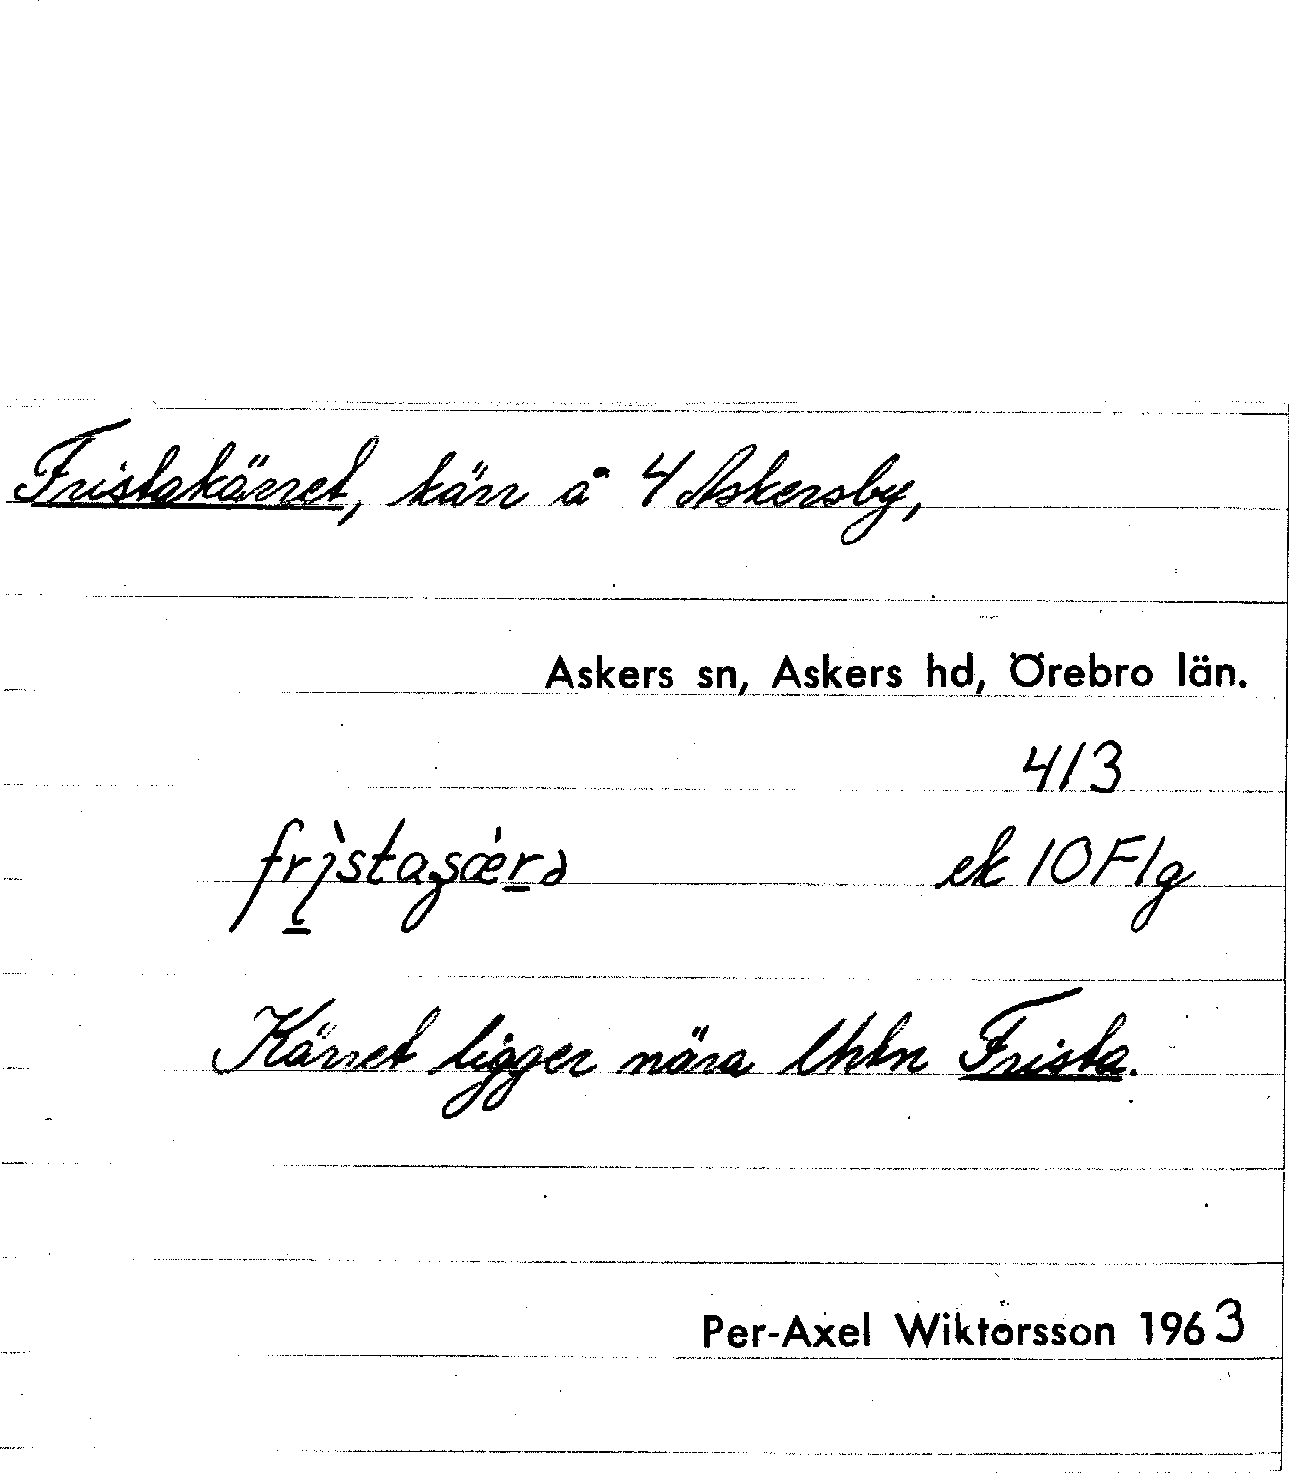 Fristakärret, kärr å 4 Askersby,
Askers sn, Askers hd, Örebro län.
413
ek 10F1g
Kärret ligger nära lhtn Frista.
Per-Axel Wiktorsson 1963